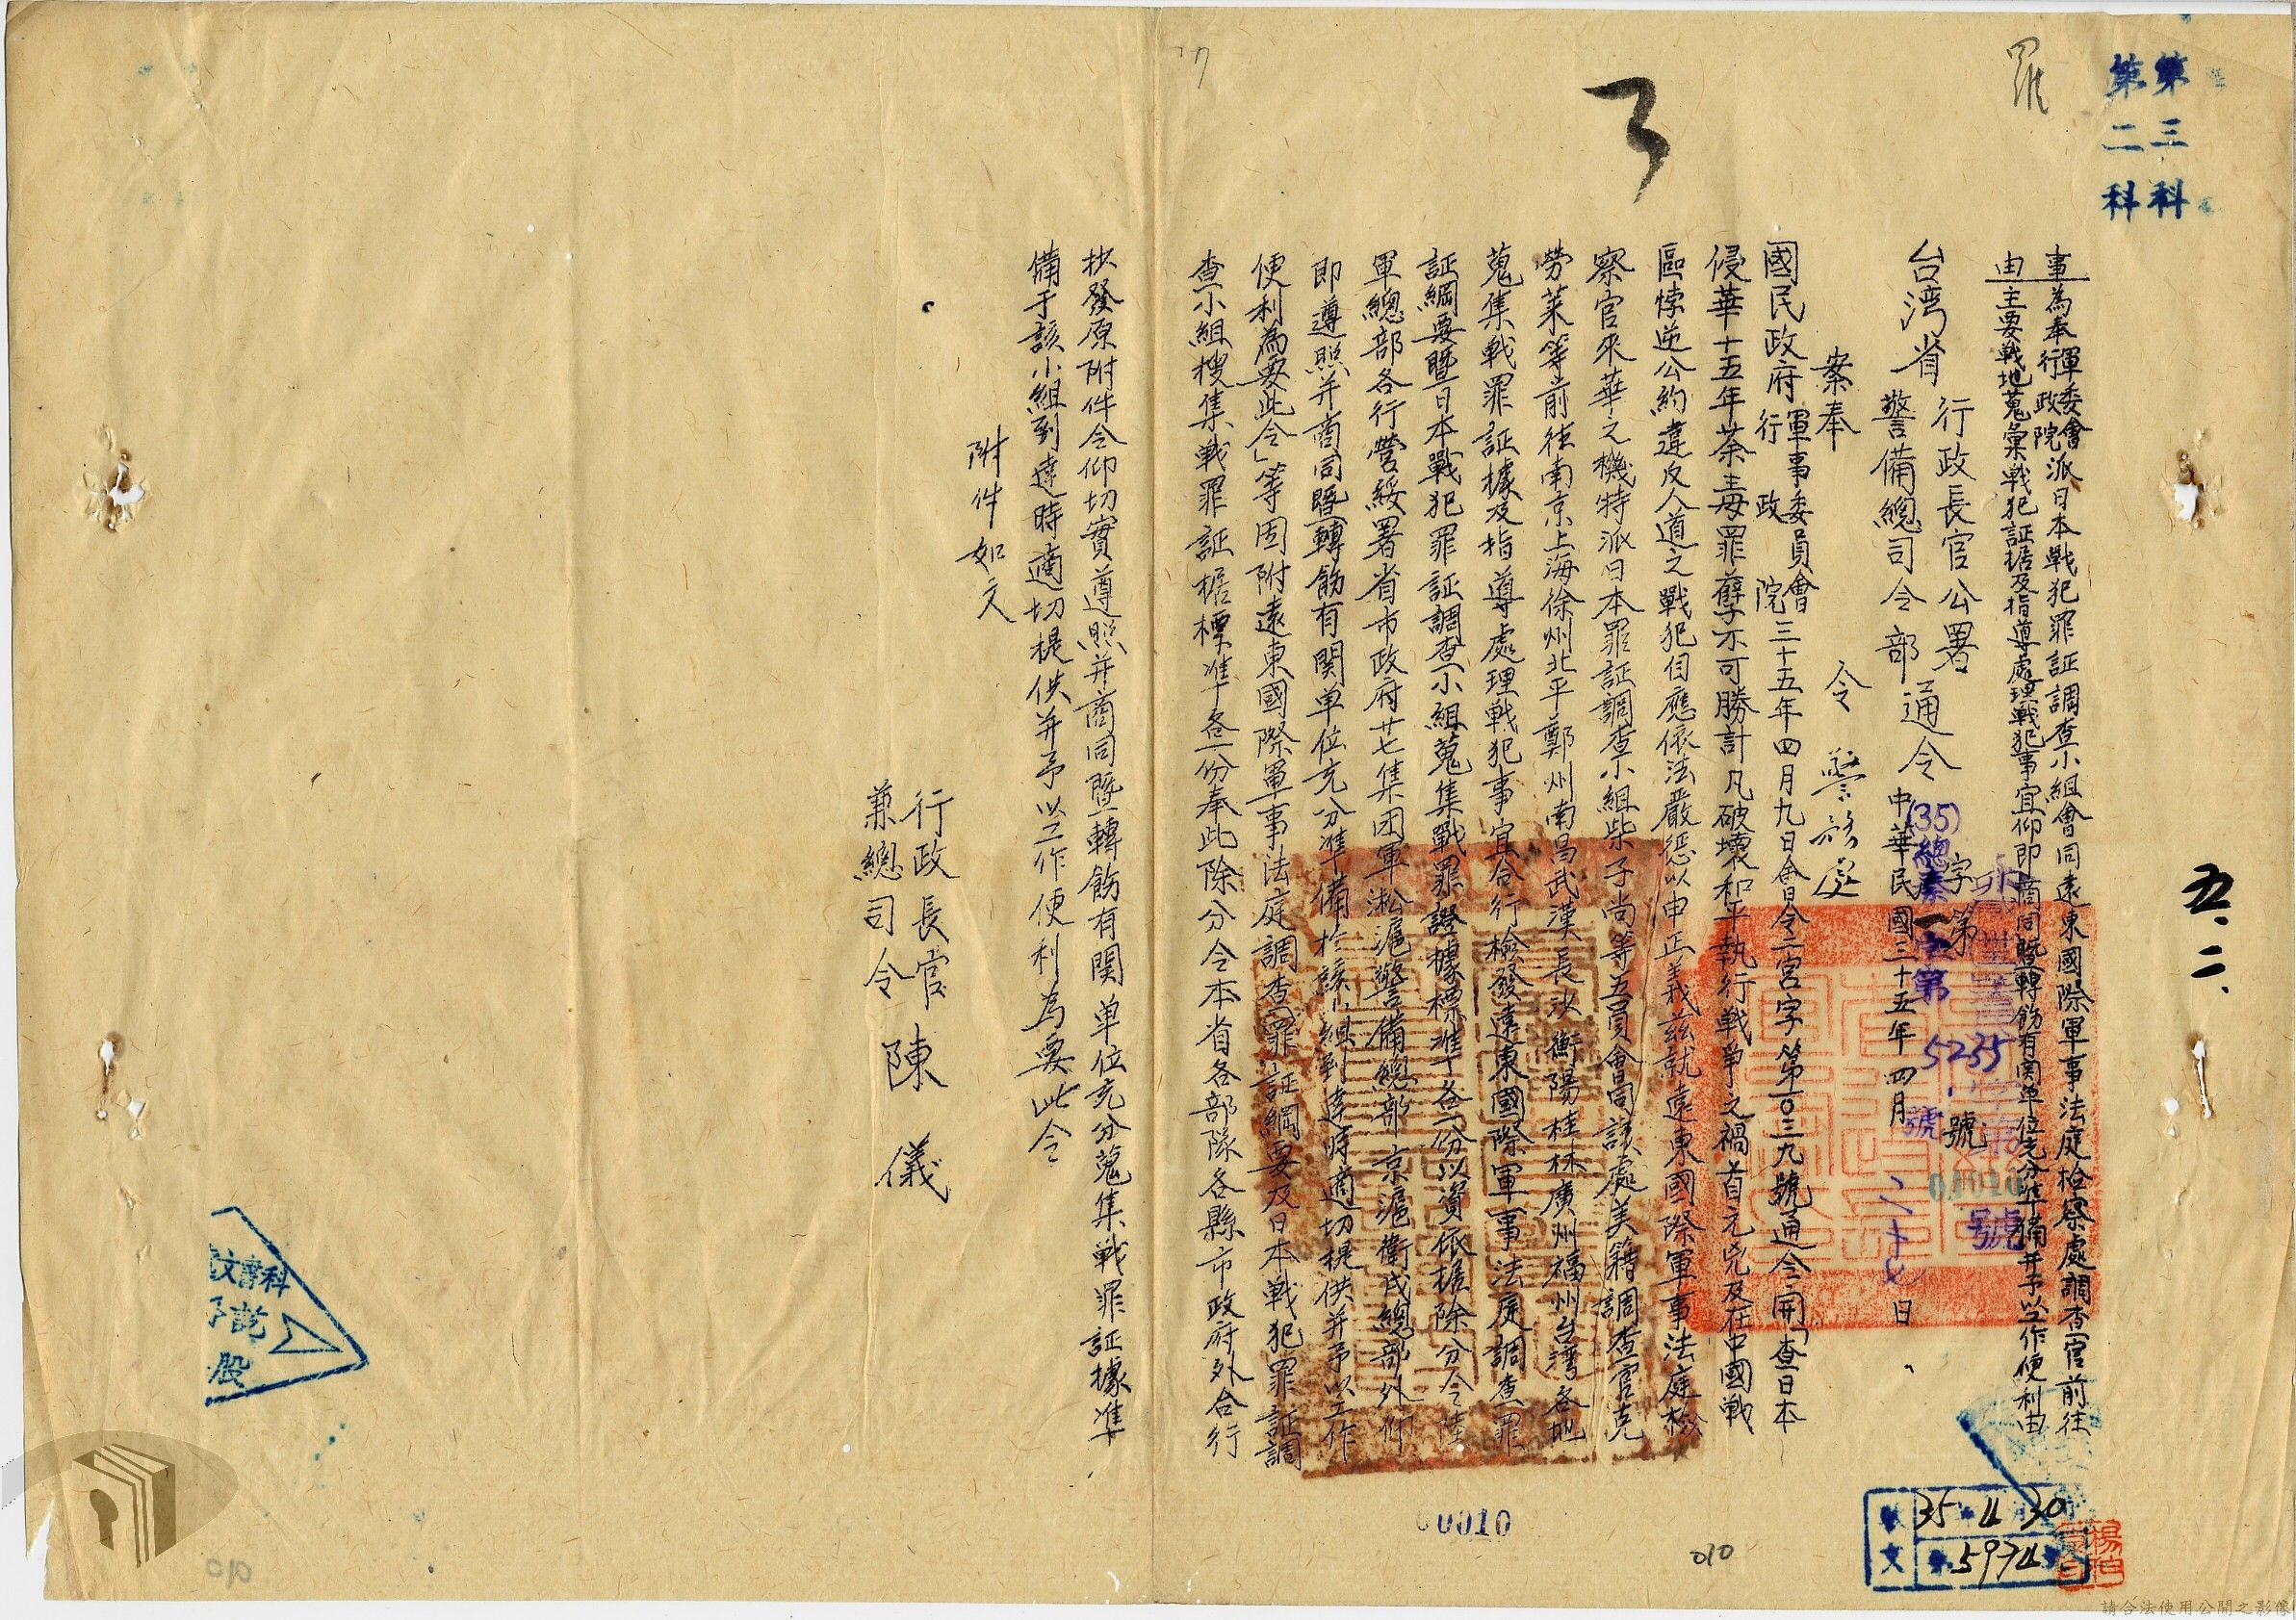 第三科
第二科
羅
五、二、
事為奉軍委會行政院派日本戰犯罪証調查小組會同遠東國際軍事法庭檢察處調查官前往
由主要戰地蒐彙戰犯証据及指導處理戰犯事宜仰即商同暨轉飭有関单位充分準備并予以工作便利由
台湾省行政長官公署
警備總司令部通令
(35)總
字第
5235
號
中華民國三十五年四月二十七日
令 警務處
案奉
國民政府軍事委員會
行政院
三十五年四月九日會令二宮字第一〇三九號通令開「查日本
侵華十五年荼毒罪孽不可勝計凡破壞和平執行戰爭之禍首元兇及在中國戰
區悖逆公約違反人道之戰犯自應依法嚴懲以申正義茲就遠東國際軍事法庭檢
察官來華之機特派日本罪証調查小組柴子尚等五員會同該處美籍調查官克
勞萊等前往南京上海徐州北平鄭州南昌武漢長沙衡陽桂林廣州福州台灣各地
蒐集戰罪証據及指導處理戰犯事宜合行檢發遠東國際軍事法庭調查罪
証綱要暨日本戰犯罪証調查小組蒐集戰罪證據標準十各一份以資依据除分令陸
軍總部各行營綏署省市政府廿七集团軍淞滬警備總部京滬衛戍總部外仰
即遵照并商同暨轉飭有関单位充分準備於該小組到達時適切提供并予以工作
便利為要此令」等因附遠東國際軍事法庭調查罪証綱要及日本戰犯罪証調
查小組搜集戰罪証据標準各一份奉此除分令本省各部隊各縣市政府外合行
抄發原附件令仰切實遵照并商同暨轉飭有関单位充分蒐集戰罪証據準
備于該小組到達時適切提供并予以工作便利為要此令
附件如文
行政長官
兼總司令
陳儀
收文
35 4 30
5974
00010
010
文書科
股
010
請合法使用公開之影像